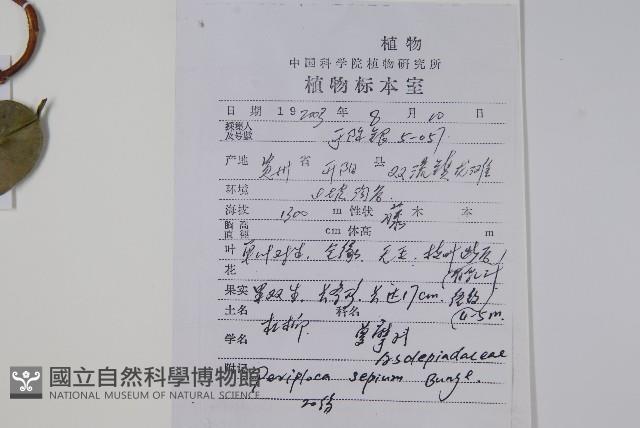 植物
中国科学院植物研究所
植物标本室
日期 19 2003 年 8 月 10 日
採集人
及号數 5-057
产地 贵州 省 开阳 县 双流镇
环境
海拔 1300 m 性状 藤 木 本
胸高
直徑 cm 体高 m
叶 单叶对生. 全缘. 无毛.
花
果实 果双生. 长达17cm. 径约
土名 杠柳 科名 4-5m.
学名 萝藦科
Asclepiadaceae
附记 Periploca sepium Bunge.
20份
國立自然科學博物館
NATIONAL MUSEUM OF NATURAL SCIENCE